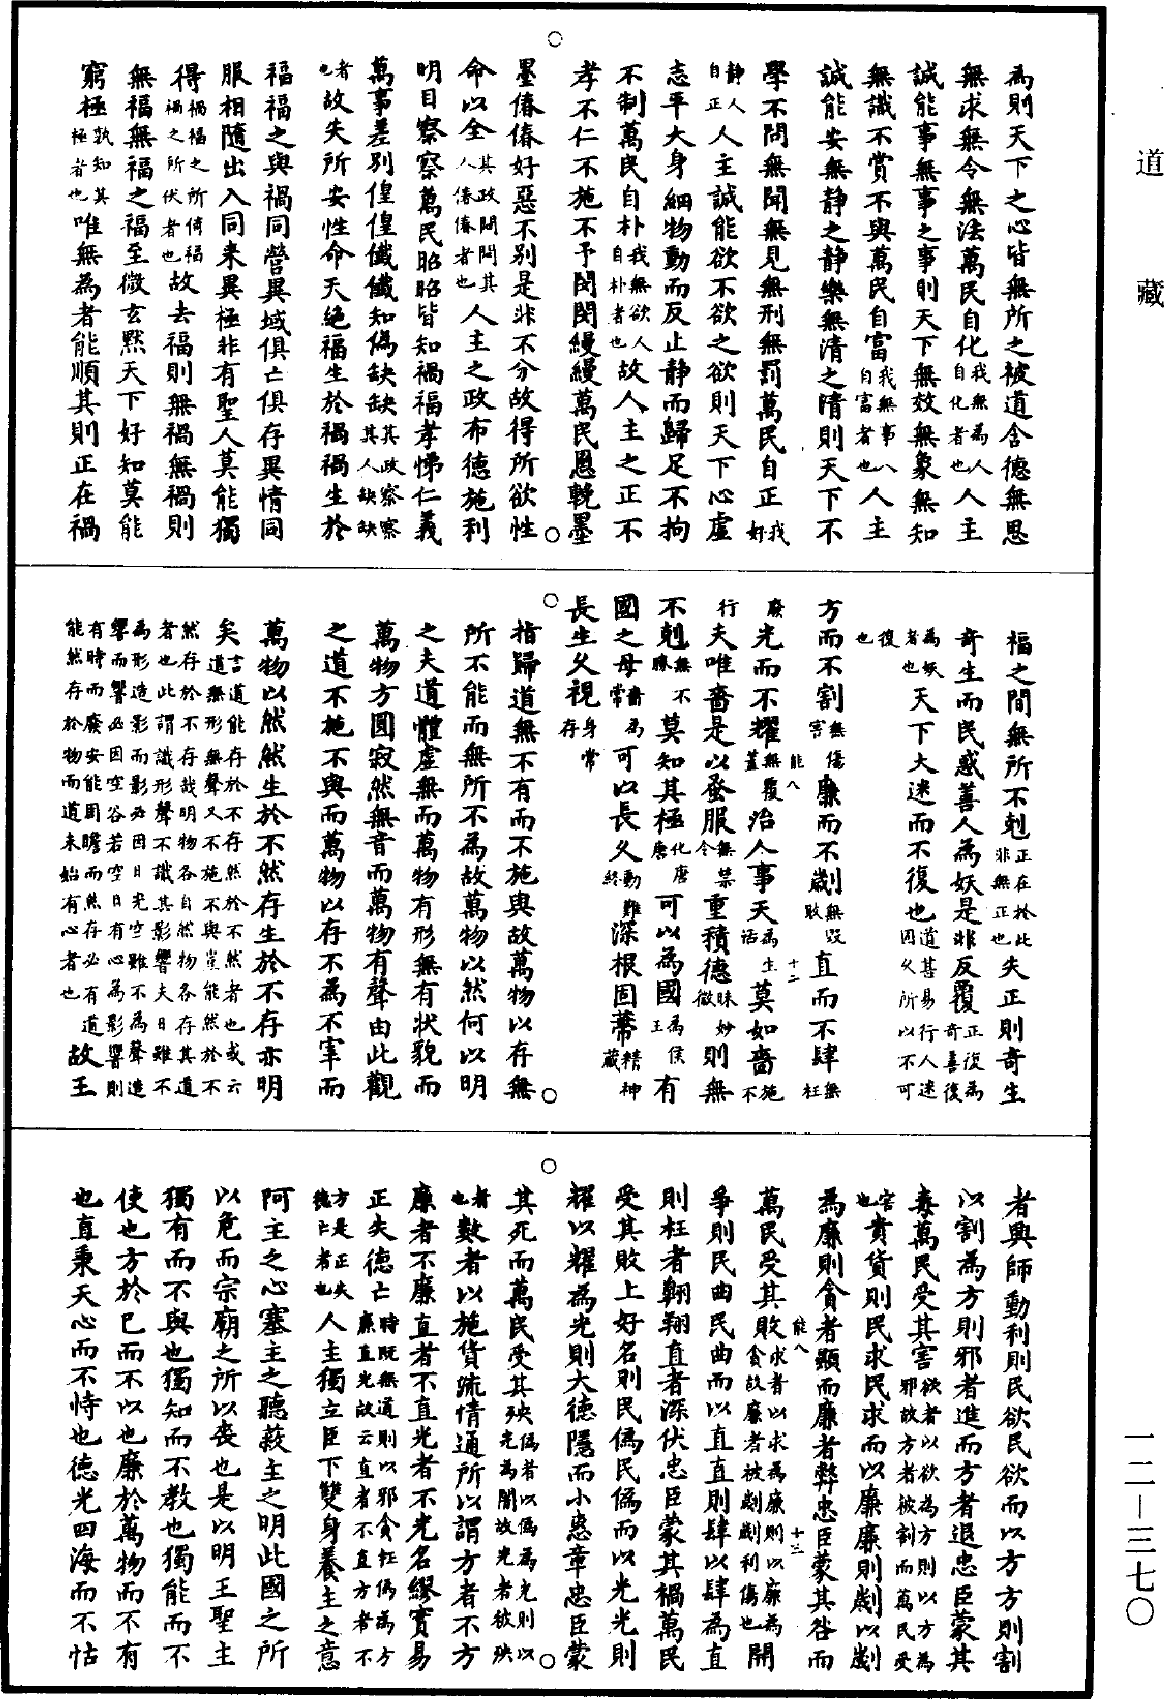 道藏
一二—三七〇
為則天下之心皆無所之被道含德無思
無求無令無法萬民自化我無為人自化者也人主
誠能事無事之事則天下無效無象無知
無識不賞不與萬民自富我無事人自富者也人主
誠能安無靜之靜樂無清之清則天下不
學不問無聞無見無刑無罰萬民自正我好
靜人自正人主誠能欲不欲之欲則天下心虛
志平大身細物動而反止靜而歸足不拘
不制萬民自朴我無欲人自朴者也故人主之正不
孝不仁不施不予閔閔縵縵萬民恩輓墨
墨偆偆好惡不別是非不分故得所欲性
命以全其政悶悶其人偆偆者也人主之政布德施利
明目察察萬民昭昭皆知禍福孝悌仁義
萬事差別偟偟儀儀知偽缺缺其政察察其人缺缺
者也故失所安性命夭絕福生於禍禍生於
福福之與禍同營異域俱亡俱存異情同
服相隨出入同來異極非有聖人莫能獨
得禍福之所倚福禍之所伏者也故去福則無禍無禍則
無福無福之福至微玄默天下好知莫能
窮極孰知其極者也唯無為者能順其則正在禍
福之間無所不剋正在於此非無正也失正則奇生
奇生而民惑善人為妖是非反覆正復為奇善復
為妖者也天下大迷而不復也道甚易行人迷因久所以不可
復也
方而不割無傷害廉而不劌無毀敗直而不肆無枉
能八
十二
廢光而不耀無覆蓋治人事天為生活莫如嗇施不
行夫唯嗇是以蚤服無禁令重積德昧妙微則無
不剋無不勝莫知其極化唐唐可以為國為侯王有
國之母嗇為常可以長久動難終深根固蔕精神藏
長生久視身常存
指歸道無不有而不施與故萬物以存無
所不能而無所不為故萬物以然何以明
之夫道體虛無而萬物有形無有狀貌而
萬物方圓寂然無音而萬物有聲由此觀
之道不施不與而萬物以存不為不宰而
萬物以然然生於不然存生於不存亦明
矣言道能存於不存然於不然者也或云道無形無聲又不施不與豈能然於不
然存於不存哉明物各自然物各存其道者也此謂識形聲不識其影響夫日雖不
為形造影而影必因日光空雖不為聲造響而響必因空谷若空日有心為影響則
有時而廢安能周贍而然存必有道能然存於物而道未始有心者也故王
者興師動利則民欲民欲而以方方則割
以割為方則邪者進而方者退忠臣蒙其
毒萬民受其害欲者以欲為方則以方為邪故方者被割而萬民受
害也貴貨則民求民求而以廉廉則劌以劌
為廉則貪者顯而廉者弊忠臣蒙其咎而
能八
十三
萬民受其敗求者以求為廉則以廉為貪故廉者被劌劌利傷也開
爭則民曲民曲而以直直則肆以肆為直
則枉者翱翔直者深伏忠臣蒙其禍萬民
受其敗上好名則民偽民偽而以光光則
耀以耀為光則大德隱而小惠章忠臣蒙
其死而萬民受其殃偽者以偽為光則以光為闇故光者被殃
者也數者以施貨疏情通所以謂方者不方
廉者不廉直者不直光者不光名繆實易
正失德亡時既無道則以邪貪枉偽為方廉直光故云直者不直方者不
方是正失德亡者也人主獨立臣下雙身養主之意
阿主之心塞主之聽蔽主之明此國之所
以危而宗廟之所以喪也是以明王聖主
獨有而不與也獨知而不教也獨能而不
使也方於己而不以也廉於萬物而不有
也直秉天心而不恃也德光四海而不怙